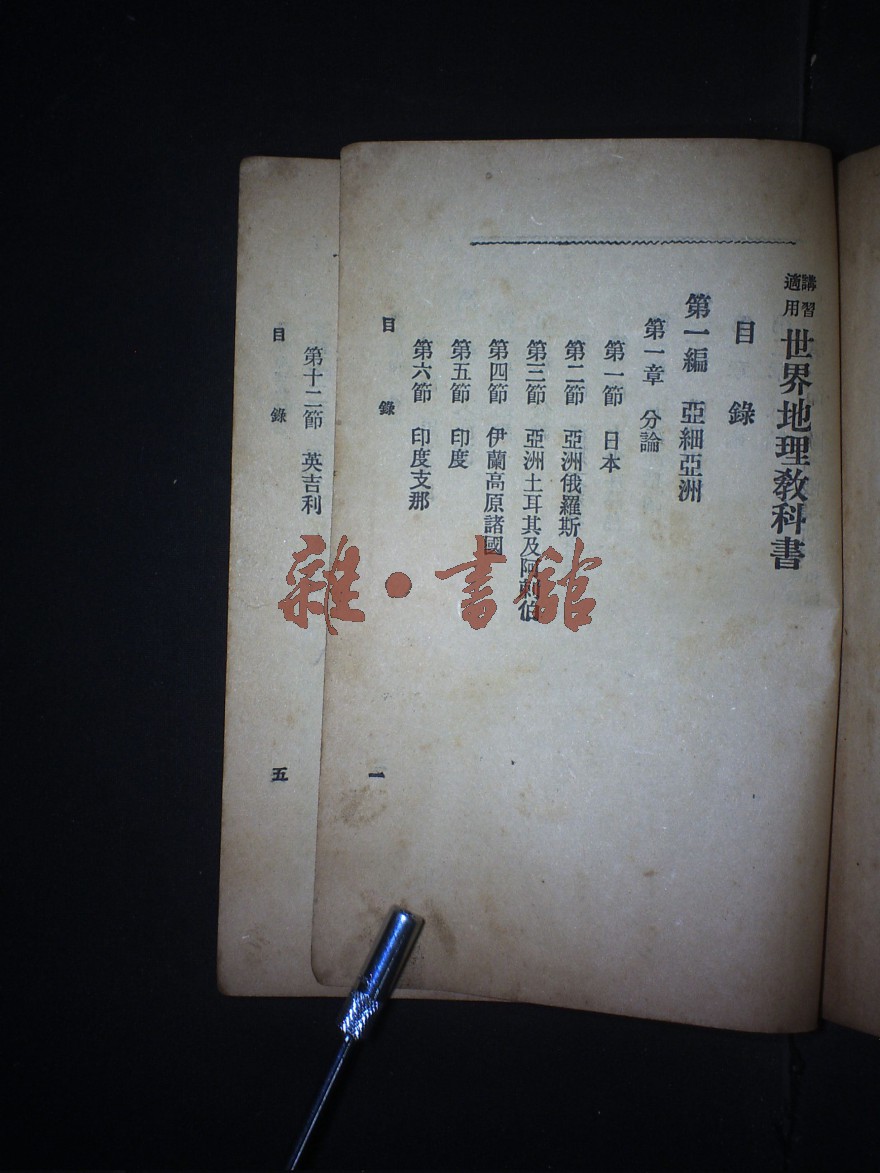 講習適用 世界地理敎科書
目錄
第一編 亞細亞洲
第一章 分論
第一節 日本
第二節 亞洲俄羅斯
第三節 亞洲土耳其及阿剌伯
第四節 伊蘭高原諸國
第五節 印度
第六節 印度支那
目錄 一
第十二節 英吉利
目錄 五
雜·書館